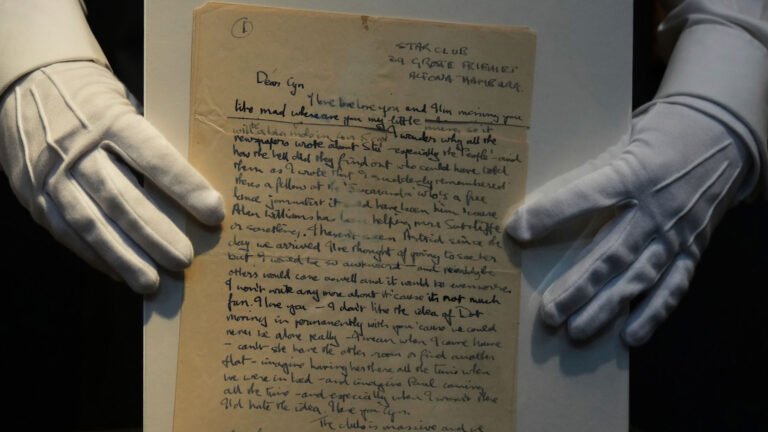 1
STAR CLUB
39 GROSSE FREIHEIT
ALTONA HAMBURG.
Dear Cyn
I love love love you and I'm missing you
like mad where are you my little
I wonder why all the
newspapers wrote about Stu - especially the 'People' - and
how the hell did they find out who could have told
them as I wrote that I suddenly remembered
theres a fellow at the 'Jacaranda' who's a free
lance journalist it could have been him 'cause
Allan Williams has been helping mrs Sutcliffe
or something. I haven't seen Astrid since the
day we arrived I've thought of going to see her
but I would be so awkward - and probably the
others would come as well and it would be even worse
I won't write any more about it 'cause its not much
fun. I love you - I don't like the idea of Dot
moving in permanently with you 'cause we could
never be alone really - I mean when I come home
- can't she have the other room or find another
flat - imagine having her there all the time when
we were in bed - and imagine Paul coming
all the time - and especially when I wasn't there
I'd hate the idea. I love you Cyn.
The club is massive and we